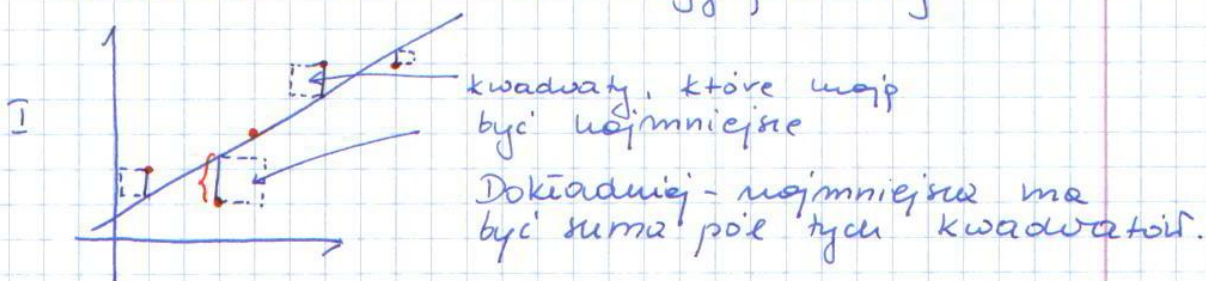 I
kwadraty, które mają
być najmniejsze
Dokładniej - najmniejsza ma
być suma pól tych kwadratów.